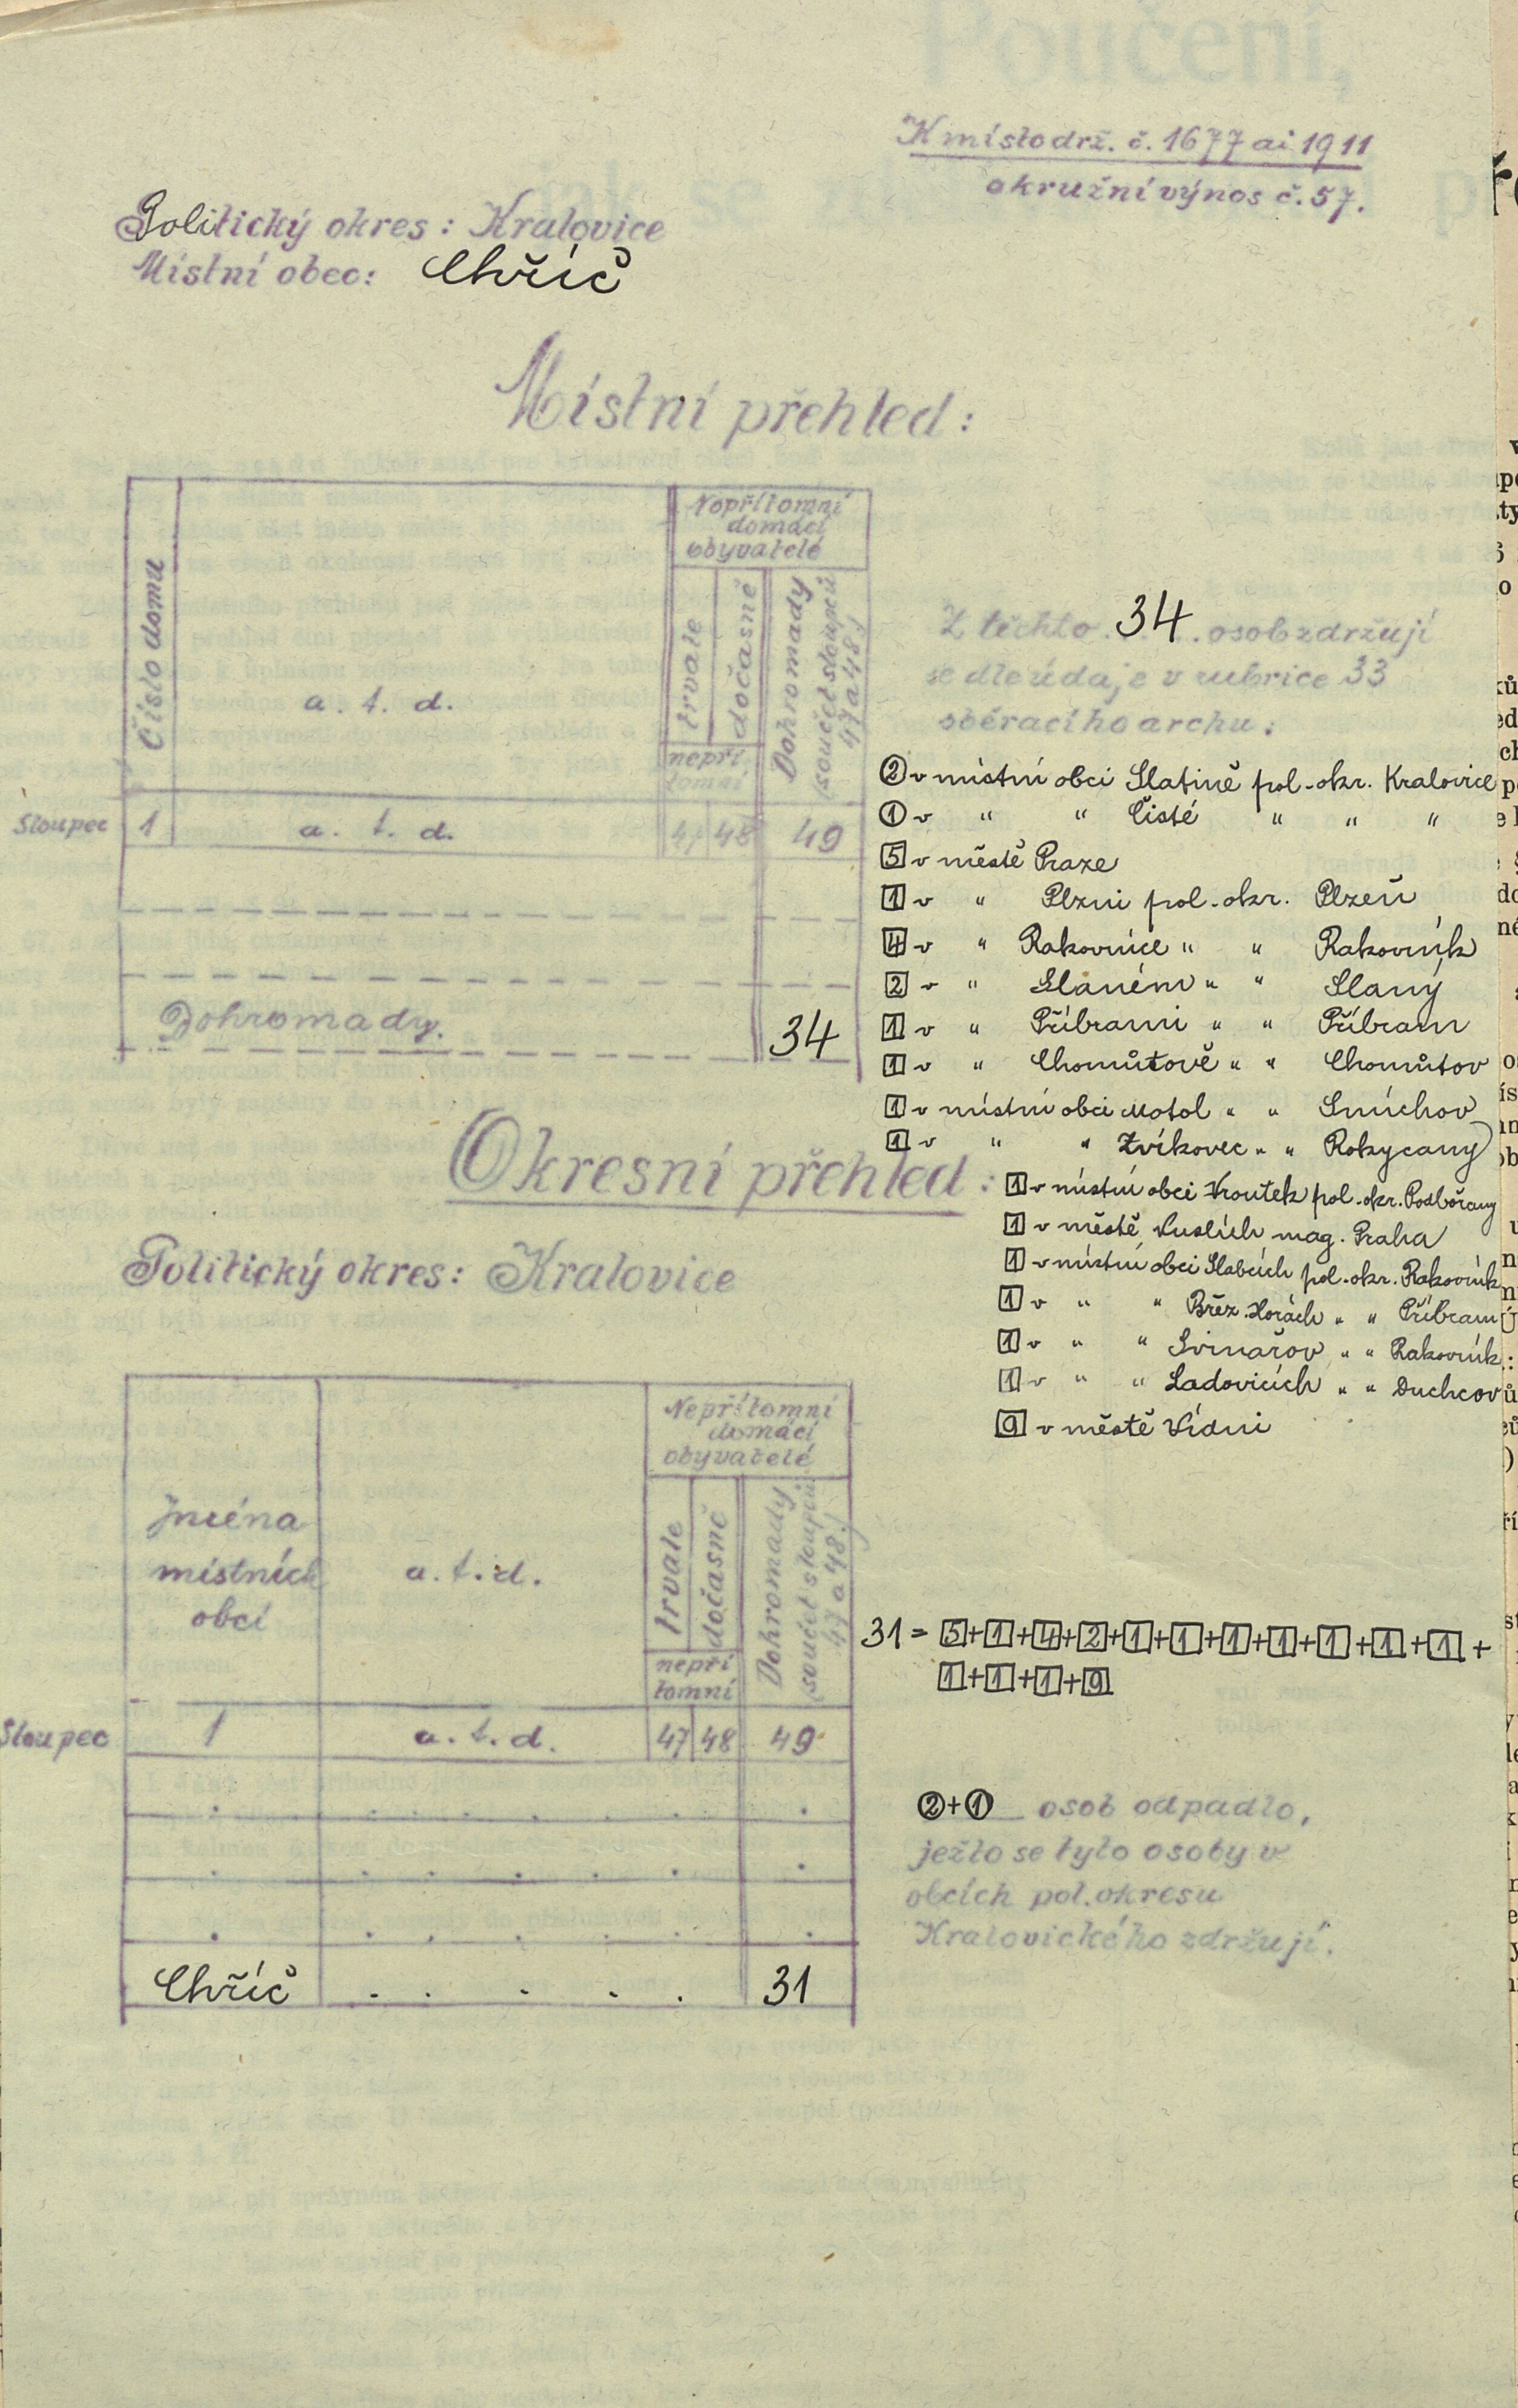 K místodrž. č. 1677 ai 1911
okružní výnos č. 57.
Politický okres: Kralovice
Místní obec: Chříč
Místní přehled:
Číslo domu
a. t. d.
Nepřítomní
domácí
obyvatelé
trvale
dočasně
nepří
tomní
Dohromady
(součet sloupců
47 a 48.)
Sloupec 1 a. t. d. 47 48 49
Dohromady. 34
Z těchto 34 osob zdržují
se dle údaje v rubrice 33
sběracího archu:
② v místní obci Slatině pol. okr. Kralovice
① v " " Čisté " " "
5 v městě Praze
1 v " Plzni pol. okr. Plzeň
4 v " Rakovníce " " Rakovník
2 v " Slaném " " Slaný
1 v " Příbrami " " Příbram
1 v " Chomůtově " " Chomůtov
1 v místní obci Motol " " Smíchov
1 v " " Zvíkovec " " Rokycany
1 v místní obci Vroutek pol. okr. Podbořany
1 v městě Nuslích mag. Praha
1 v místní obci Slabcích pol. okr. Rakovník
1 v " " Břez. Horách " " Příbram
1 v " " Svinařov " " Rakovník
1 v " " Ladovicích " " Duchcov
9 v městě Vídni
Okresní přehled:
Politický okres: Kralovice
Jména
místních
obcí
a. t. d.
Nepřítomní
domácí
obyvatelé
trvale
dočasně
nepří
tomní
Dohromady
(součet sloupců
47 a 48.)
Sloupec 1 a. t. d. 47 48 49
Chříč . . . . . 31
31 = 5+1+4+2+1+1+1+1+1+1+1+
1+1+1+9
②+① osob odpadlo,
ježto se tyto osoby v
obcích pol. okresu
Kralovického zdržují.